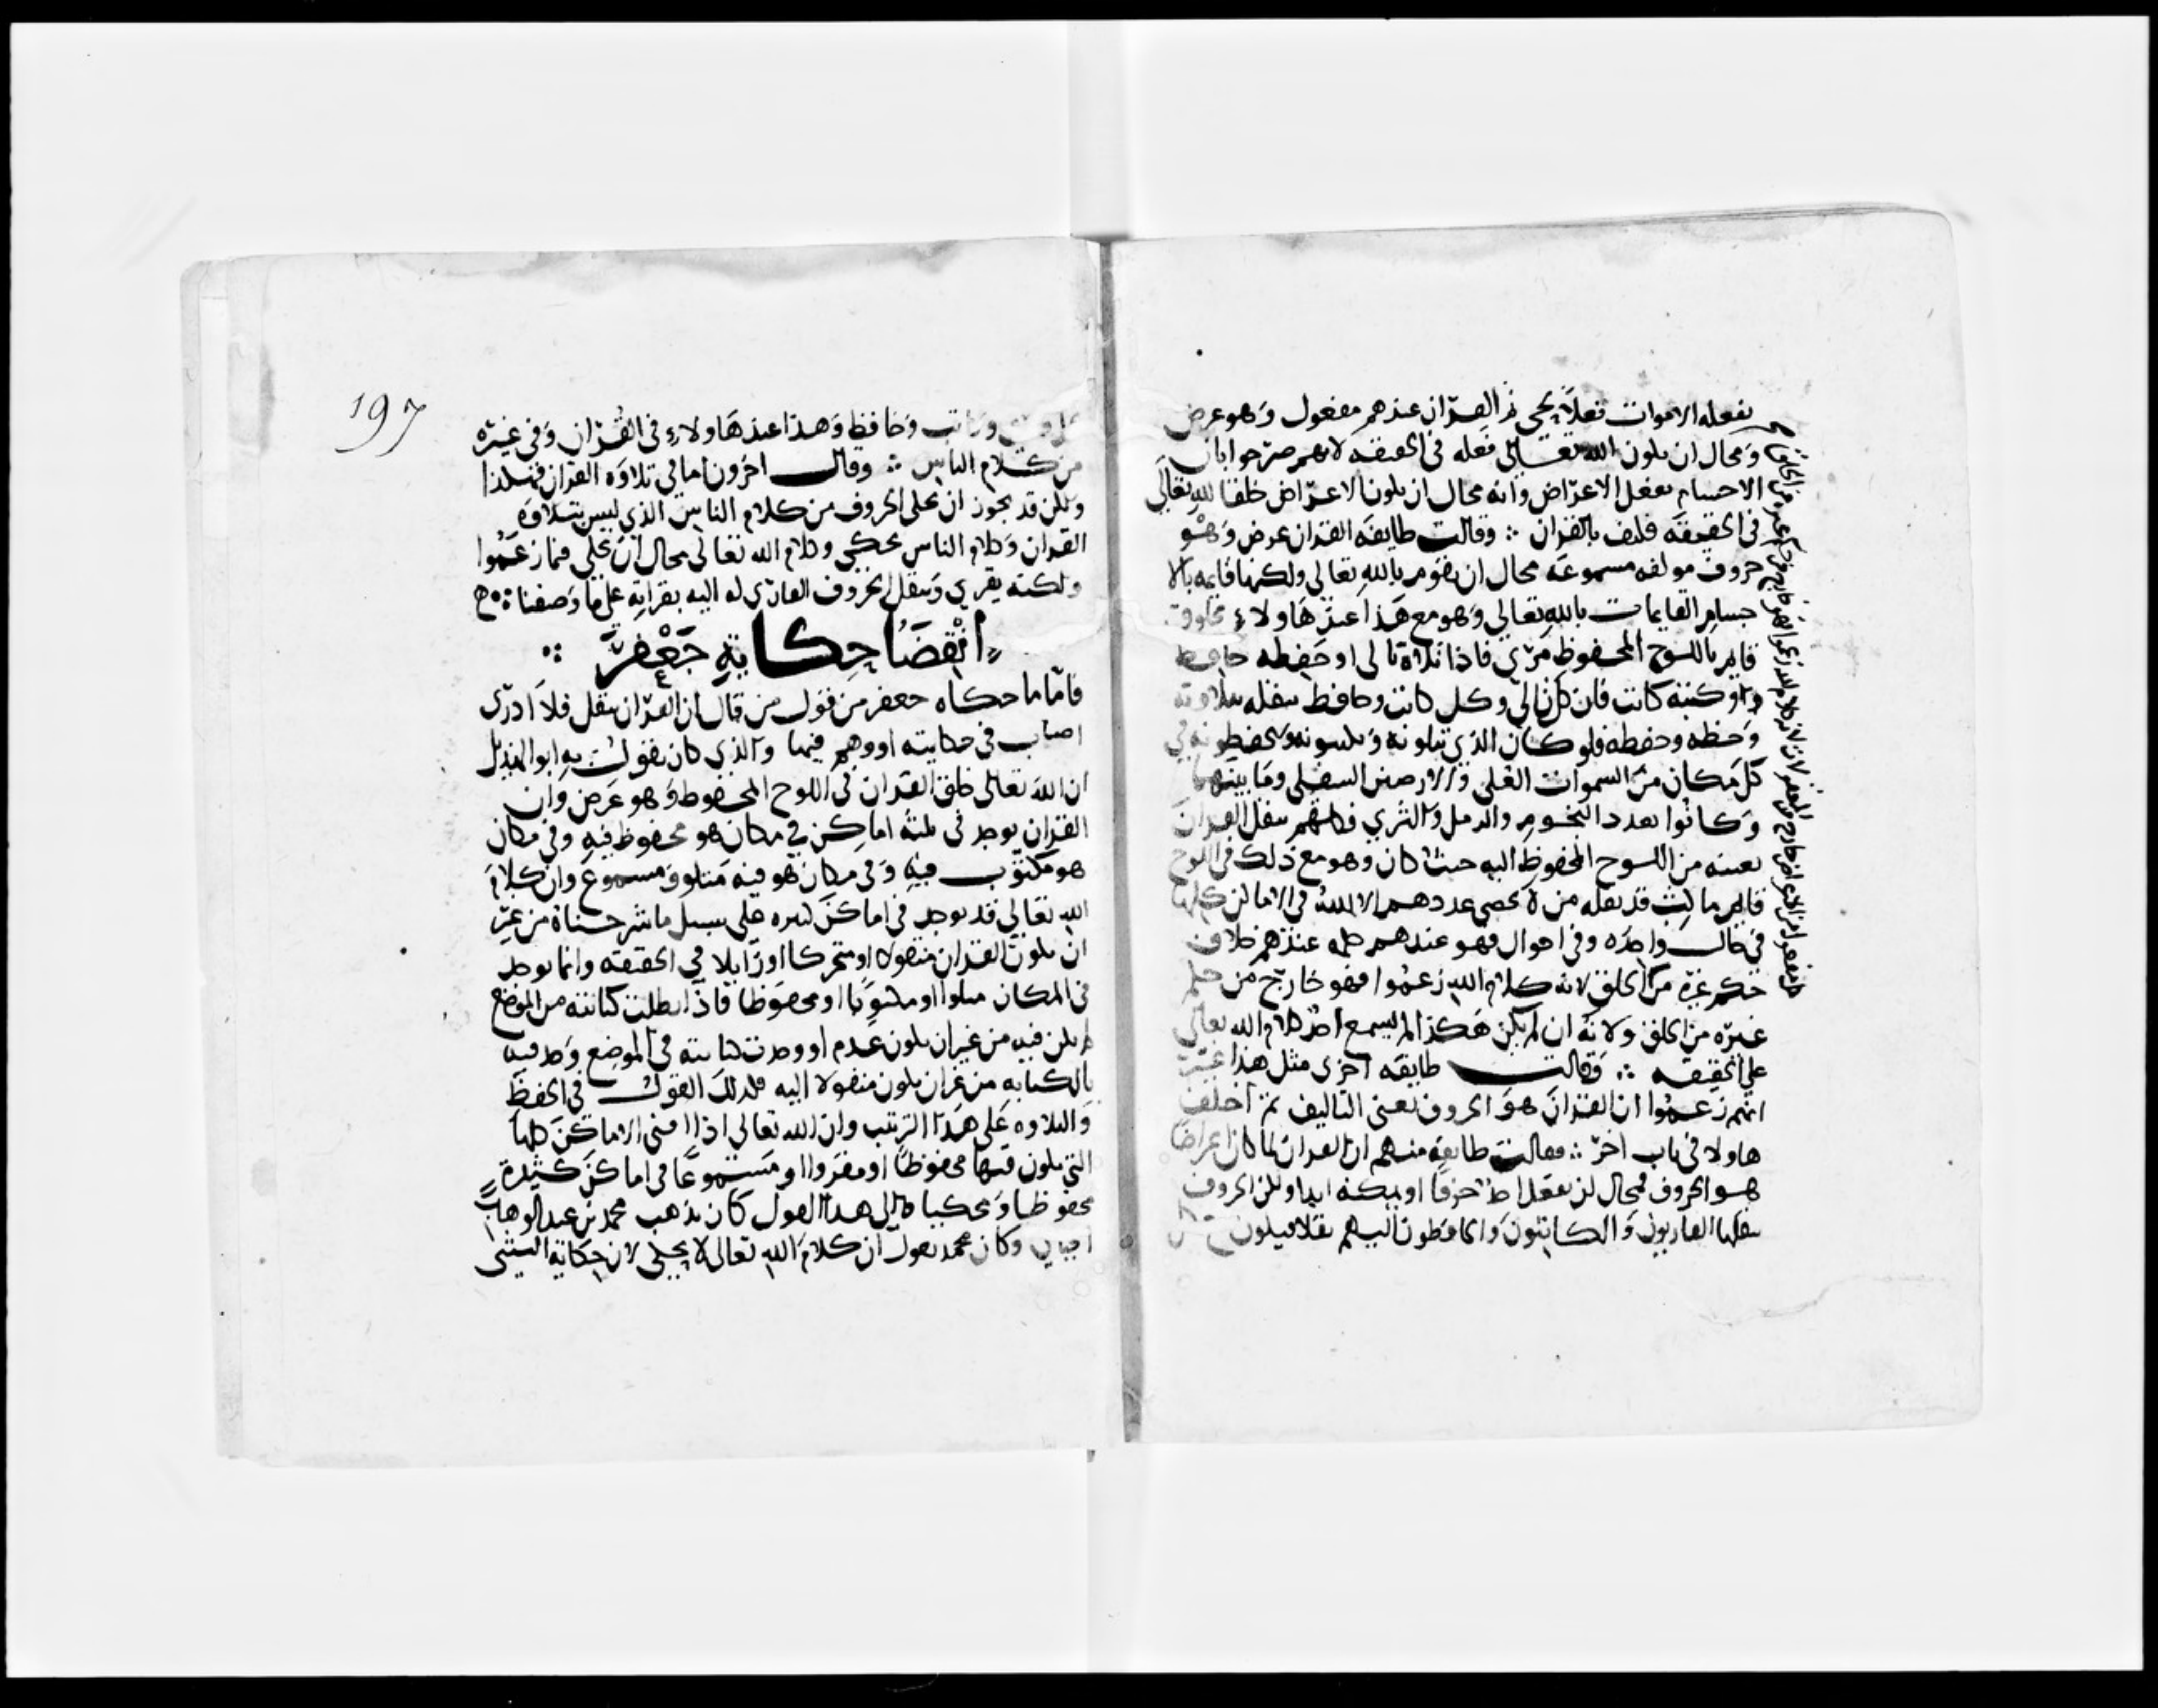 يفعله الاموات فعلا يحي فالقران عندهم مفعول وهو عرض
ومحال ان يكون الله تعالى فعله في الحقيقه لانهم صرحوا بان
الاجسام تفعل الاعراض وانه محال ان يكون الاعراض خلقا لله تعالى
في الحقيقه فكيف بالقران ∴ وقالت طايفه القران عرض وهو
حروف مولفه مسموعه محال ان يقوم بالله تعالى ولكنها قايمه بالا
جسام القايمات بالله تعالى وهو مع هذا عند هاولاء مخلوق
قايم باللوح المحفوظ مرئ فاذا تلاه تالى او حفظه حافظ
او كتبه كاتب فان كل تالي وكل كاتب وحافظ ينقله بتلاوته
وخطه وحفظه فلو كان الذي يتلونه ويكتبونه ويحفظونه في
كل مكان من السموات العلى والارضين السفلى وما بينهما
وكانوا بعدد النجوم والرمل والثرى فكلهم ينقل القران
بعينه من اللوح المحفوظ اليه حيث كان وهو مع ذلك في اللوح
قايم ماكث قد نقله من لا يحصى عددهم الا الله في الاماكن كلها
في حال واحده وفي احوال فهو عندهم كله عندهم خلاف
حكم غيره من الخلق لانه كلام الله زعموا فهو خارج من حكم
غيره من الخلق ولانه ان لم يكن هكذا لم يسمع احد كلام الله تعالى
على الحقيقه ∴ وقالت طايفه اخرى مثل هذا غير
انهم زعموا ان القران هو الحروف يعني التاليف ثم اختلف
هاولا في باب اخر ∴ فقالت طايفه منهم ان القران لما كان اعراضا
هو الحروف فمحال ان يفعل احد حرفا او يحكيه ابدا ولكن الحروف
ينقلها القاريون والكاتبون والحافظون اليهم نقلا فيكون مع كل
197
وكاتب وحافظ وهذا عند هاولاء في القران وفي غيره
من كلام الناس ∴ وقال اخرون اما في تلاوه القران فهكذا
ولكن قد يجوز ان يحكى الحروف من كلام الناس الذي ليس بتلاوه
القران وكلام الناس يحكى وكلام الله تعالى محال ان يحكى فيما زعموا
ولكنه يقرى وينقل الحروف القارى له اليه بقرايته على ما وصفنا
انقضا حكاية جعفر ∴
فاما ما حكاه جعفر من قول من قال ان القران ينقل فلا ادرى
اصاب في حكايته او وهم فيها والذي كان يقول به ابو الهذيل
ان الله تعالى خلق القران في اللوح المحفوظ وهو عرض وان
القران يوجد في ثلثة اماكن في مكان هو محفوظ فيه وفي مكان
هو مكتوب فيه وفي مكان هو فيه متلو ومسموع وان كلام
الله تعالى قد يوجد في اماكن كثيره على سبيل ما شرحناه من غير
ان يكون القران منقولا او متحركا او زايلا في الحقيقه وانما يوجد
في المكان متلوا او مكتوبا او محفوظا فاذا بطلت كتابته من الموضع
لم يكن فيه من غير ان يكون عدم او وجدت كتابته في الموضع وجد فيه
بالكتابه من غير ان يكون منقولا اليه فكذلك القول في الحفظ
والتلاوه على هذا الترتيب وان الله تعالى اذا افنى الاماكن كلها
التي يكون فيها محفوظا او مقروا او مسموعا في اماكن كثيرة
محفوظا ومحكيا والى هذا القول كان يذهب محمد بن عبد الوهاب
الجبايي وكان محمد يقول ان كلام الله تعالى لا يحكى لان حكاية الشى